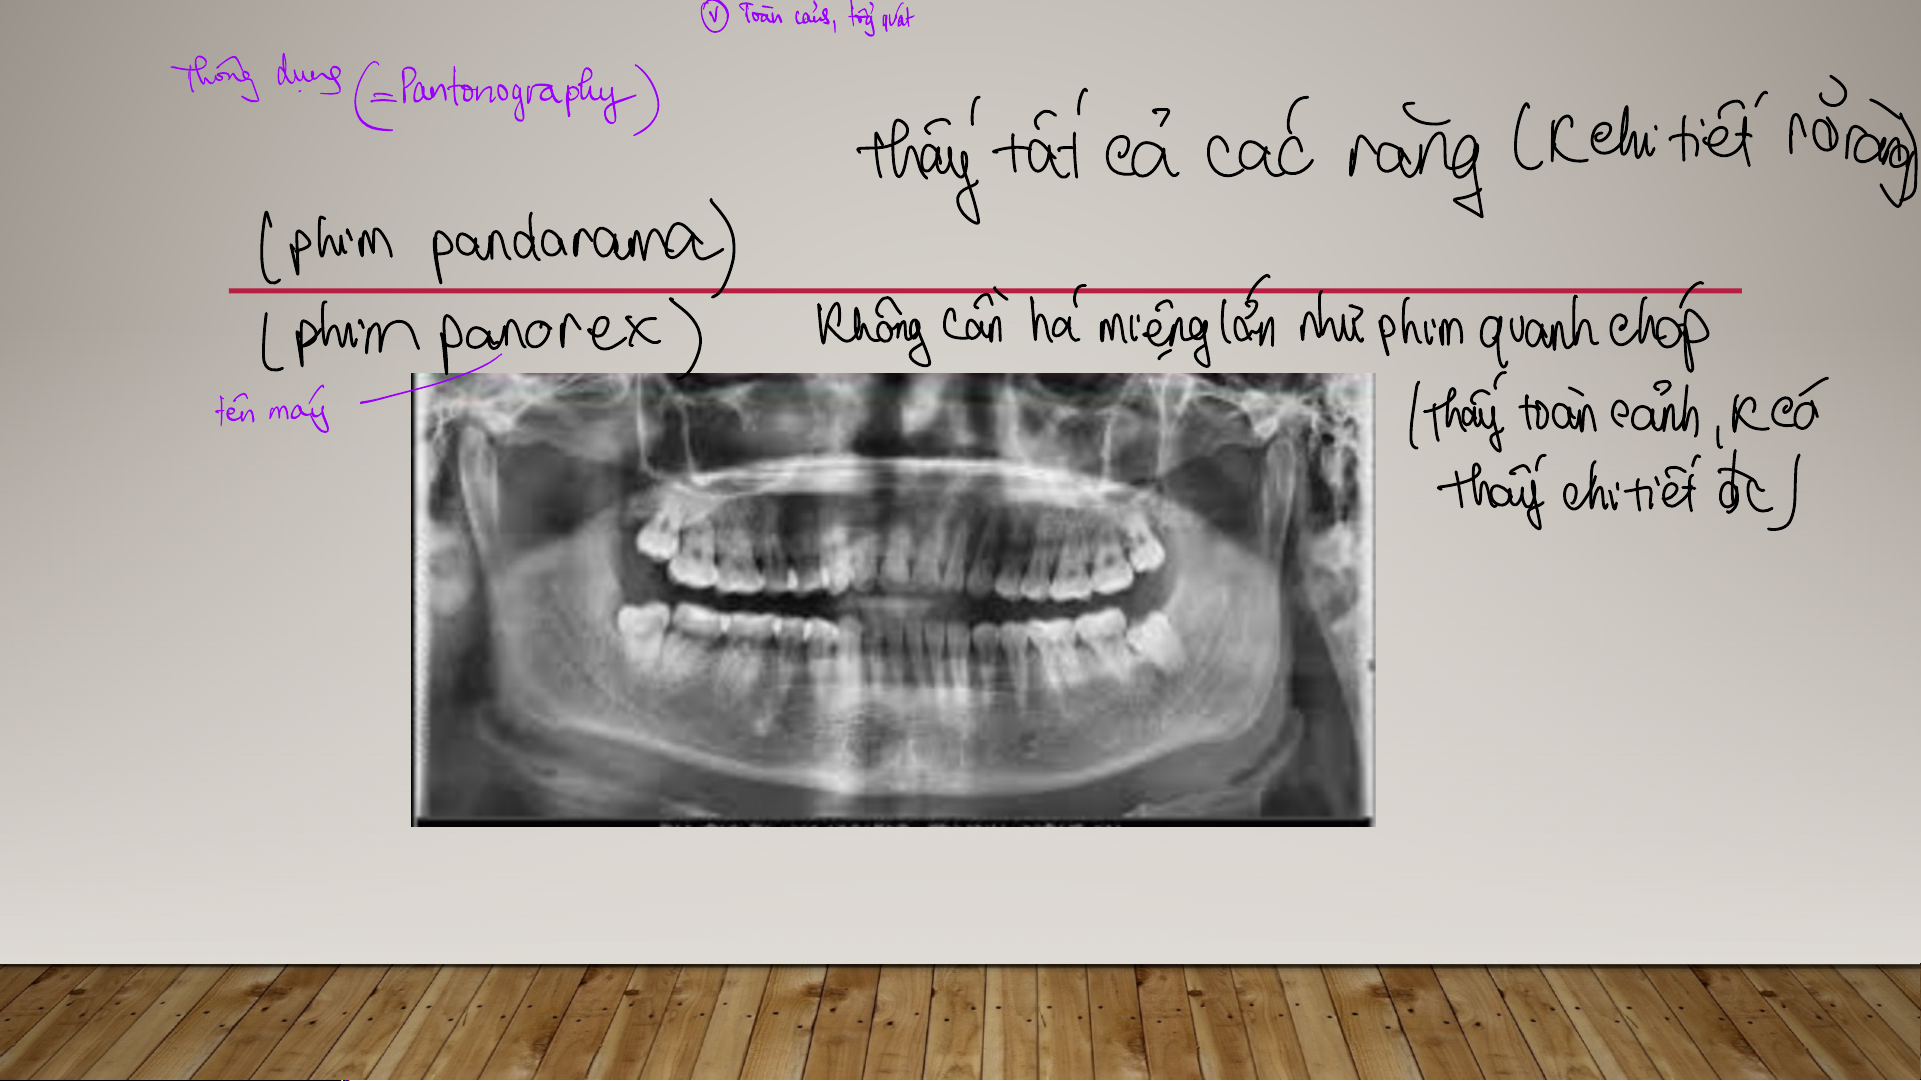 Toàn cảnh, tổng quát
Thông dụng (=Pantonography)
thấy tất cả các răng (K chi tiết rõ ràng)
(phim pandarama)
(phim panorex)
Không cần há miệng lớn như phim quanh chóp
tên máy
(thấy toàn cảnh, K có
thấy chi tiết đc)